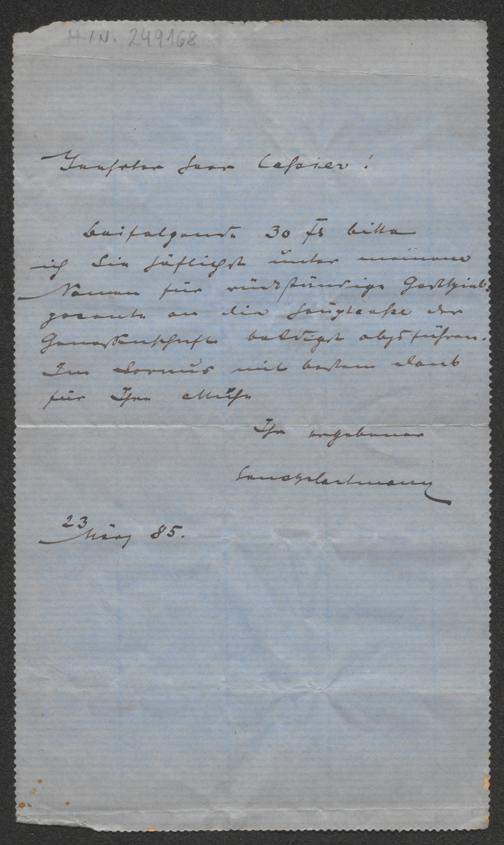 H.I.N. 249168
Geehrter Herr Cassier!
Beifolgende 30 Fl bitte
ich Sie höflichst unter meinem
Namen für rückständige Gastspiel-
procente an die Hauptcasse der
Genossenschaft baldigst abzuführen.
Im Voraus mit bestem Dank
für Ihre Mühe
Ihr ergebener
23
März 85.